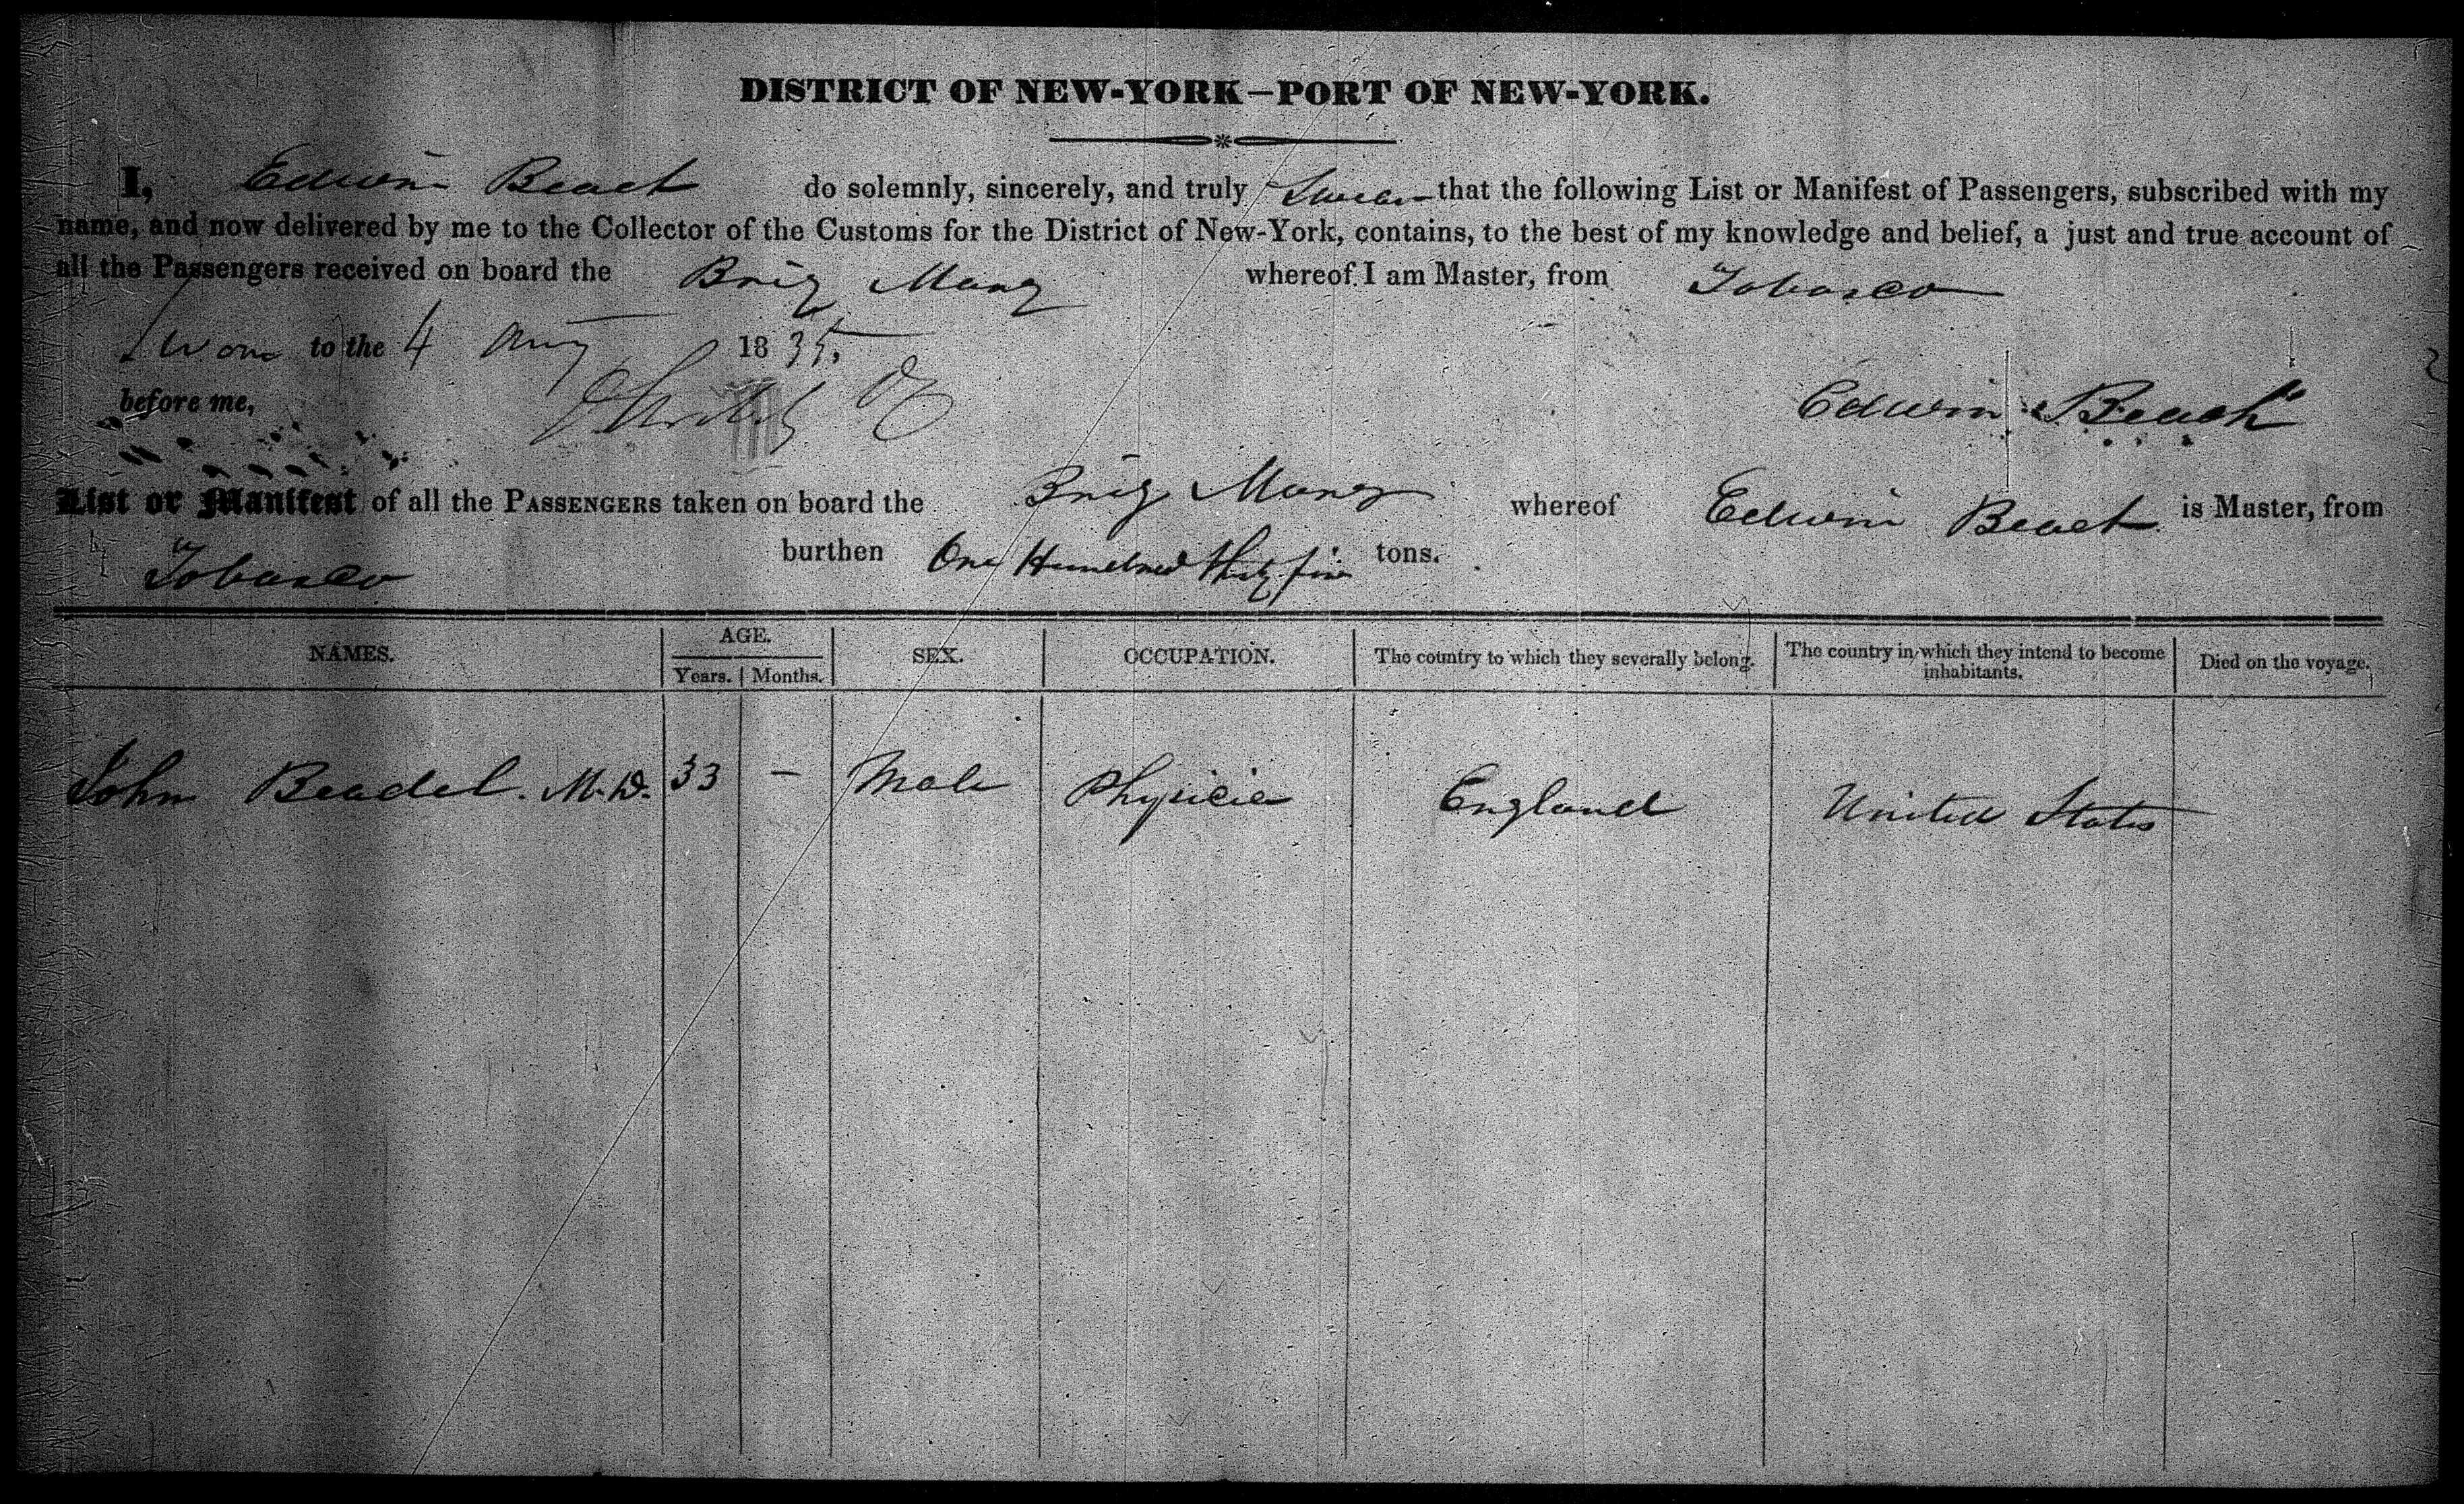 DISTRICT OF NEW-YORK—PORT OF NEW-YORK.
I, Edwin Beach do solemnly, sincerely, and truly Swear that the following List or Manifest of Passengers, subscribed with my
name, and now delivered by me to the Collector of the Customs for the District of New-York, contains, to the best of my knowledge and belief, a just and true account of
all the Passengers received on board the Brig Mary whereof I am Master, from Tobasco
Sworn to the 4 Aug 1835.
before me, Edwin Beach
List or Manifest of all the PASSENGERS taken on board the Brig Mary whereof Edwin Beach is Master, from
Tobasco burthen One Hundred thirty five tons.
NAMES. AGE. SEX. OCCUPATION. The country to which they severally belong. The country in which they intend to become inhabitants. Died on the voyage.
Years. Months.
John Beadel. M.D. 33 — Male Physicia England United States